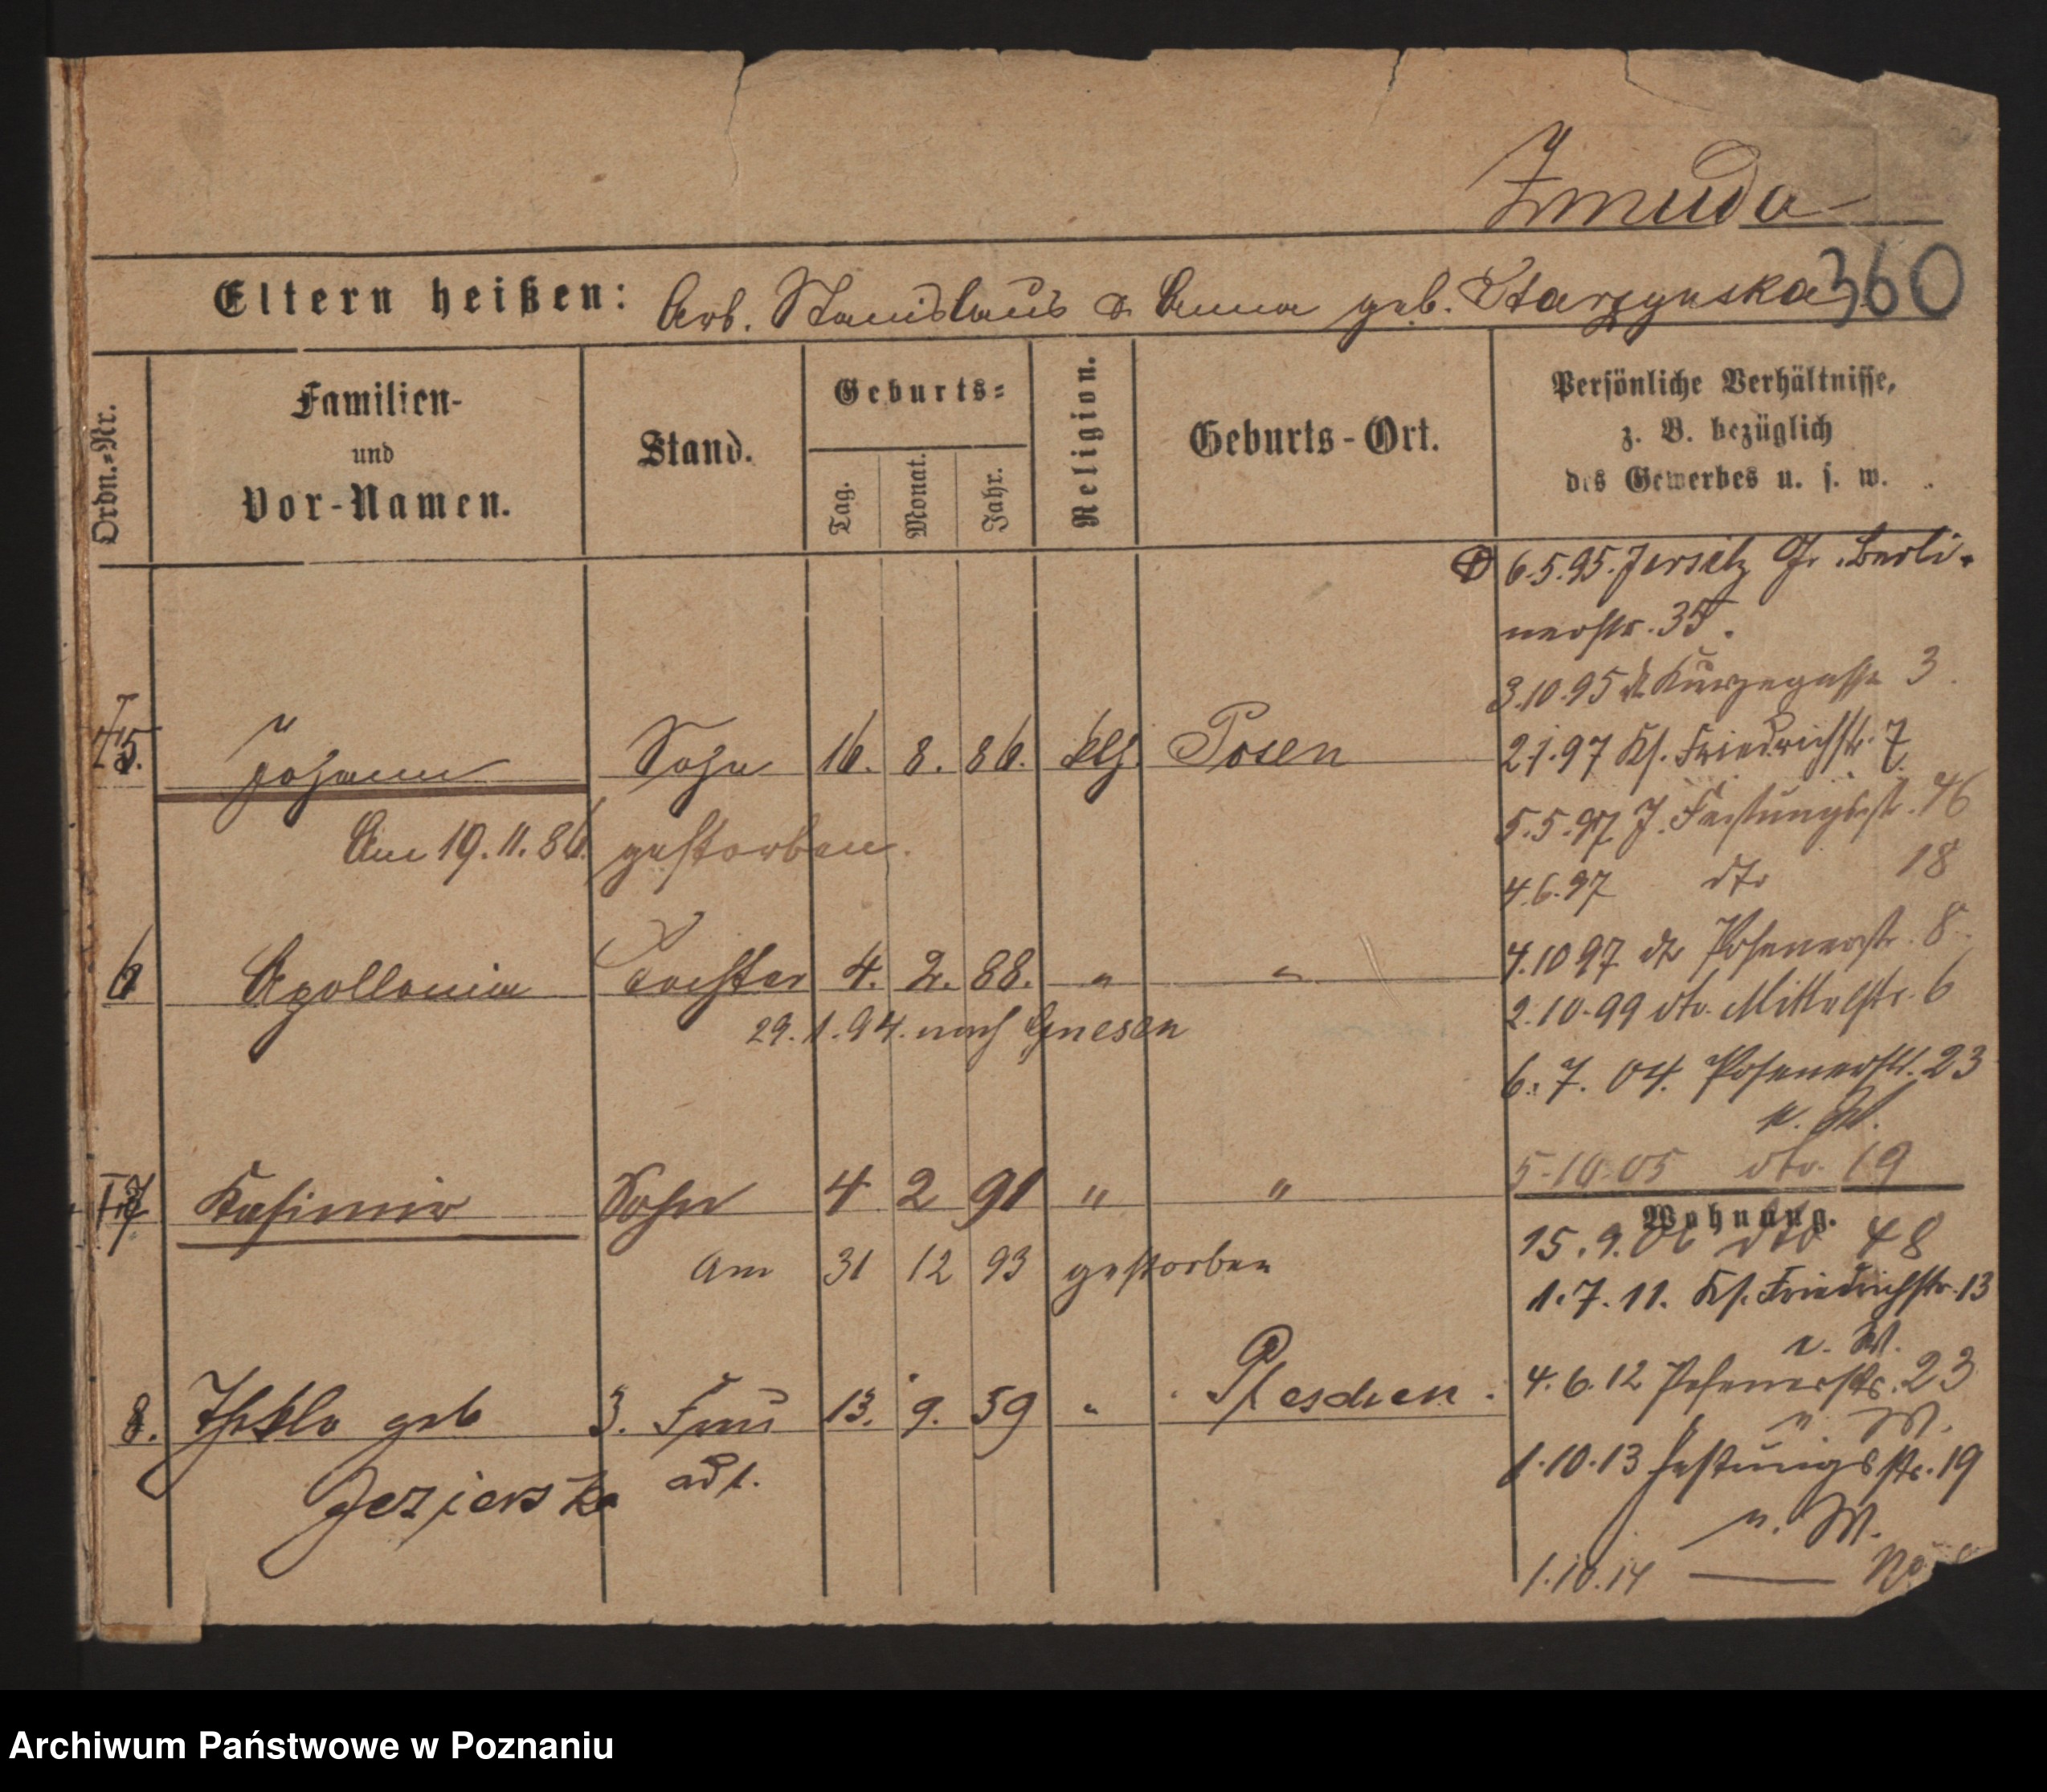 Zmuda
Eltern heißen: Arb. Stanislaus & Anna geb. Starzynska 360
Ordn.-Nr.
Familien-
und
Vor-Namen.
Stand.
Geburts-
Tag.
Monat.
Jahr.
Religion.
Geburts-Ort.
Persönliche Verhältnisse,
z. B. bezüglich
des Gewerbes u. s. w.
5. Johann Sohn 16. 8. 86. klg. Posen
Am 19.11.86. gestorben.
6 Apollonia Tochter 4. 2. 88. " "
29.1.94. nach Gnesen
7 Kasimir Sohn 4 2 91 " "
Am 31 12 93 gestorben
8. Thekla geb 3. Frau 13. 9. 59 " Pleschen.
Jezierska adt.
6.5.95. Jersitz Gr. Berli-
nerstr. 35.
3.10.95 dt Kurzegasse 3.
2.1.97 Ks. Friedrichstr. 7
5.5.97 J. Festungsstr. 46
4.6.97 dto 18
4.10 97 dto Posenerstr. 8
2.10.99 dto. Mittelstr. 6
6.7.04. Posenerstr. 23
n. W.
5.10.05 dto. 19
Wohnung.
15.9.06 dto 48
1.7.11. Ks. Friedrichstr. 13
n. W.
4.6.12 Posenerstr. 23
n W.
1.10.13 Festungsstr. 19
n. W.
1.10.14 —